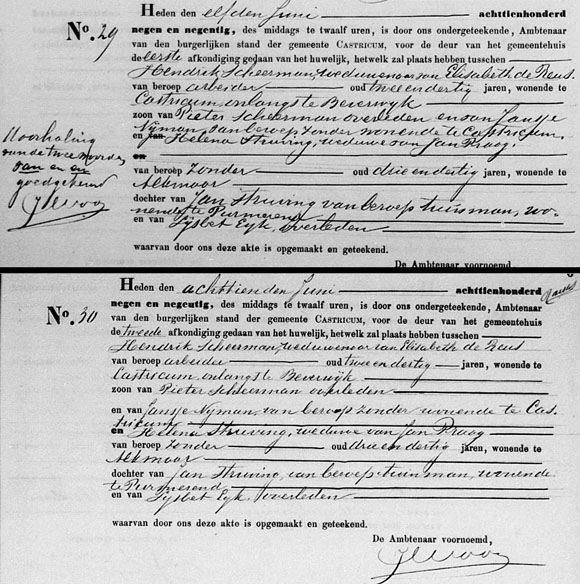 Heden den elfden Juni achttienhonderd
No. 29 negen en negentig, des middags te twaalf uren, is door ons ondergeteekende, Ambtenaar
van den burgerlijken stand der gemeente CASTRICUM, voor de deur van het gemeentehuis
de eerste afkondiging gedaan van het huwelijk, hetwelk zal plaats hebben tusschen
Hendrik Scheerman, weduwenaar van Elisabeth de Reus
van beroep arbeider oud twee en dertig jaren, wonende te
Castricum, onlangs te Beverwijk
zoon van Pieter Scheerman overleden en van Jansje
Nyman, van beroep zonder wonende te Castricum,
en Helena Struving, weduwe van Jan Praag,
en
van beroep zonder oud drie en dertig jaren, wonende te
Alkmaar
dochter van Jan Struving van beroep tuinman, wo-
nende te Purmerend
en van Lijsbet Eyk, overleden
waarvan door ons deze akte is opgemaakt en geteekend.
De Ambtenaar voornoemd,
Doorhaling
van de twee woorden
van en en
goedgekeurd
Heden den achttienden Juni achttienhonderd
No. 30 negen en negentig, des middags te twaalf uren, is door ons ondergeteekende, Ambtenaar
van den burgerlijken stand der gemeente CASTRICUM, voor de deur van het gemeentehuis
de tweede afkondiging gedaan van het huwelijk, hetwelk zal plaats hebben tusschen
Hendrik Scheerman, weduwenaar van Elisabeth de Reus
van beroep arbeider oud twee en dertig jaren, wonende te
Castricum onlangs te Beverwijk
zoon van Pieter Scheerman overleden
en van Jansje Nyman, van beroep zonder wonende te Cas-
tricum
en Helena Struving, weduwe van Jan Praag
van beroep zonder oud drie en dertig jaren, wonende te
Alkmaar
dochter van Jan Struving, van beroep tuinman, wonende
te Purmerend
en van Lijsbet Eyk, overleden
waarvan door ons deze akte is opgemaakt en geteekend.
De Ambtenaar voornoemd,